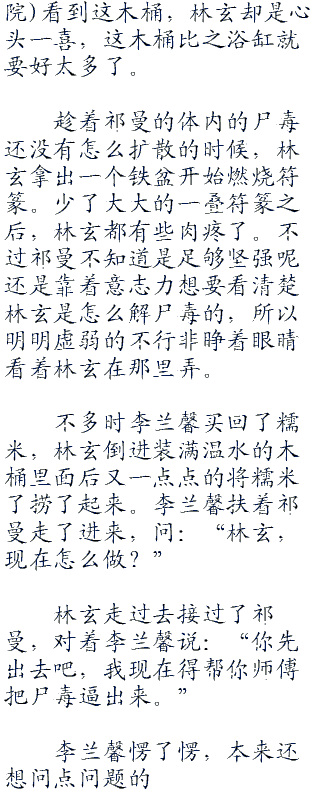 院)看到这木桶，林玄却是心
头一喜，这木桶比之浴缸就
要好太多了。
趁着祁曼的体内的尸毒
还没有怎么扩散的时候，林
玄拿出一个铁盆开始燃烧符
篆。少了大大的一叠符篆之
后，林玄都有些肉疼了。不
过祁曼不知道是足够坚强呢
还是靠着意志力想要看清楚
林玄是怎么解尸毒的，所以
明明虚弱的不行非睁着眼睛
看着林玄在那里弄。
不多时李兰馨买回了糯
米，林玄倒进装满温水的木
桶里面后又一点点的将糯米
了捞了起来。李兰馨扶着祁
曼走了进来，问：“林玄，
现在怎么做？”
林玄走过去接过了祁
曼，对着李兰馨说：“你先
出去吧，我现在得帮你师傅
把尸毒逼出来。”
李兰馨愣了愣，本来还
想问点问题的